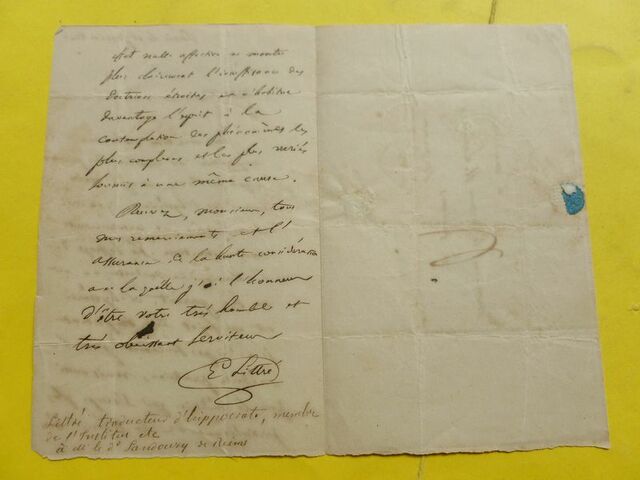 effet nulle affection ne montre
plus clairement l'insuffisance des
doctrines étroites et n'habitue
davantage l'esprit à la
contemplation des phénomènes les
plus complexes et les plus variés
soumis à une même cause.
Recevez, monsieur, tous
mes remerciements et l'
assurance de la haute considération
avec laquelle j'ai l'honneur
d'être votre très humble et
très obéissant serviteur
E Littré
Littré traducteur d'hippocrate, membre
de l'Institut etc
à Mr le Dr Landouzy de Reims